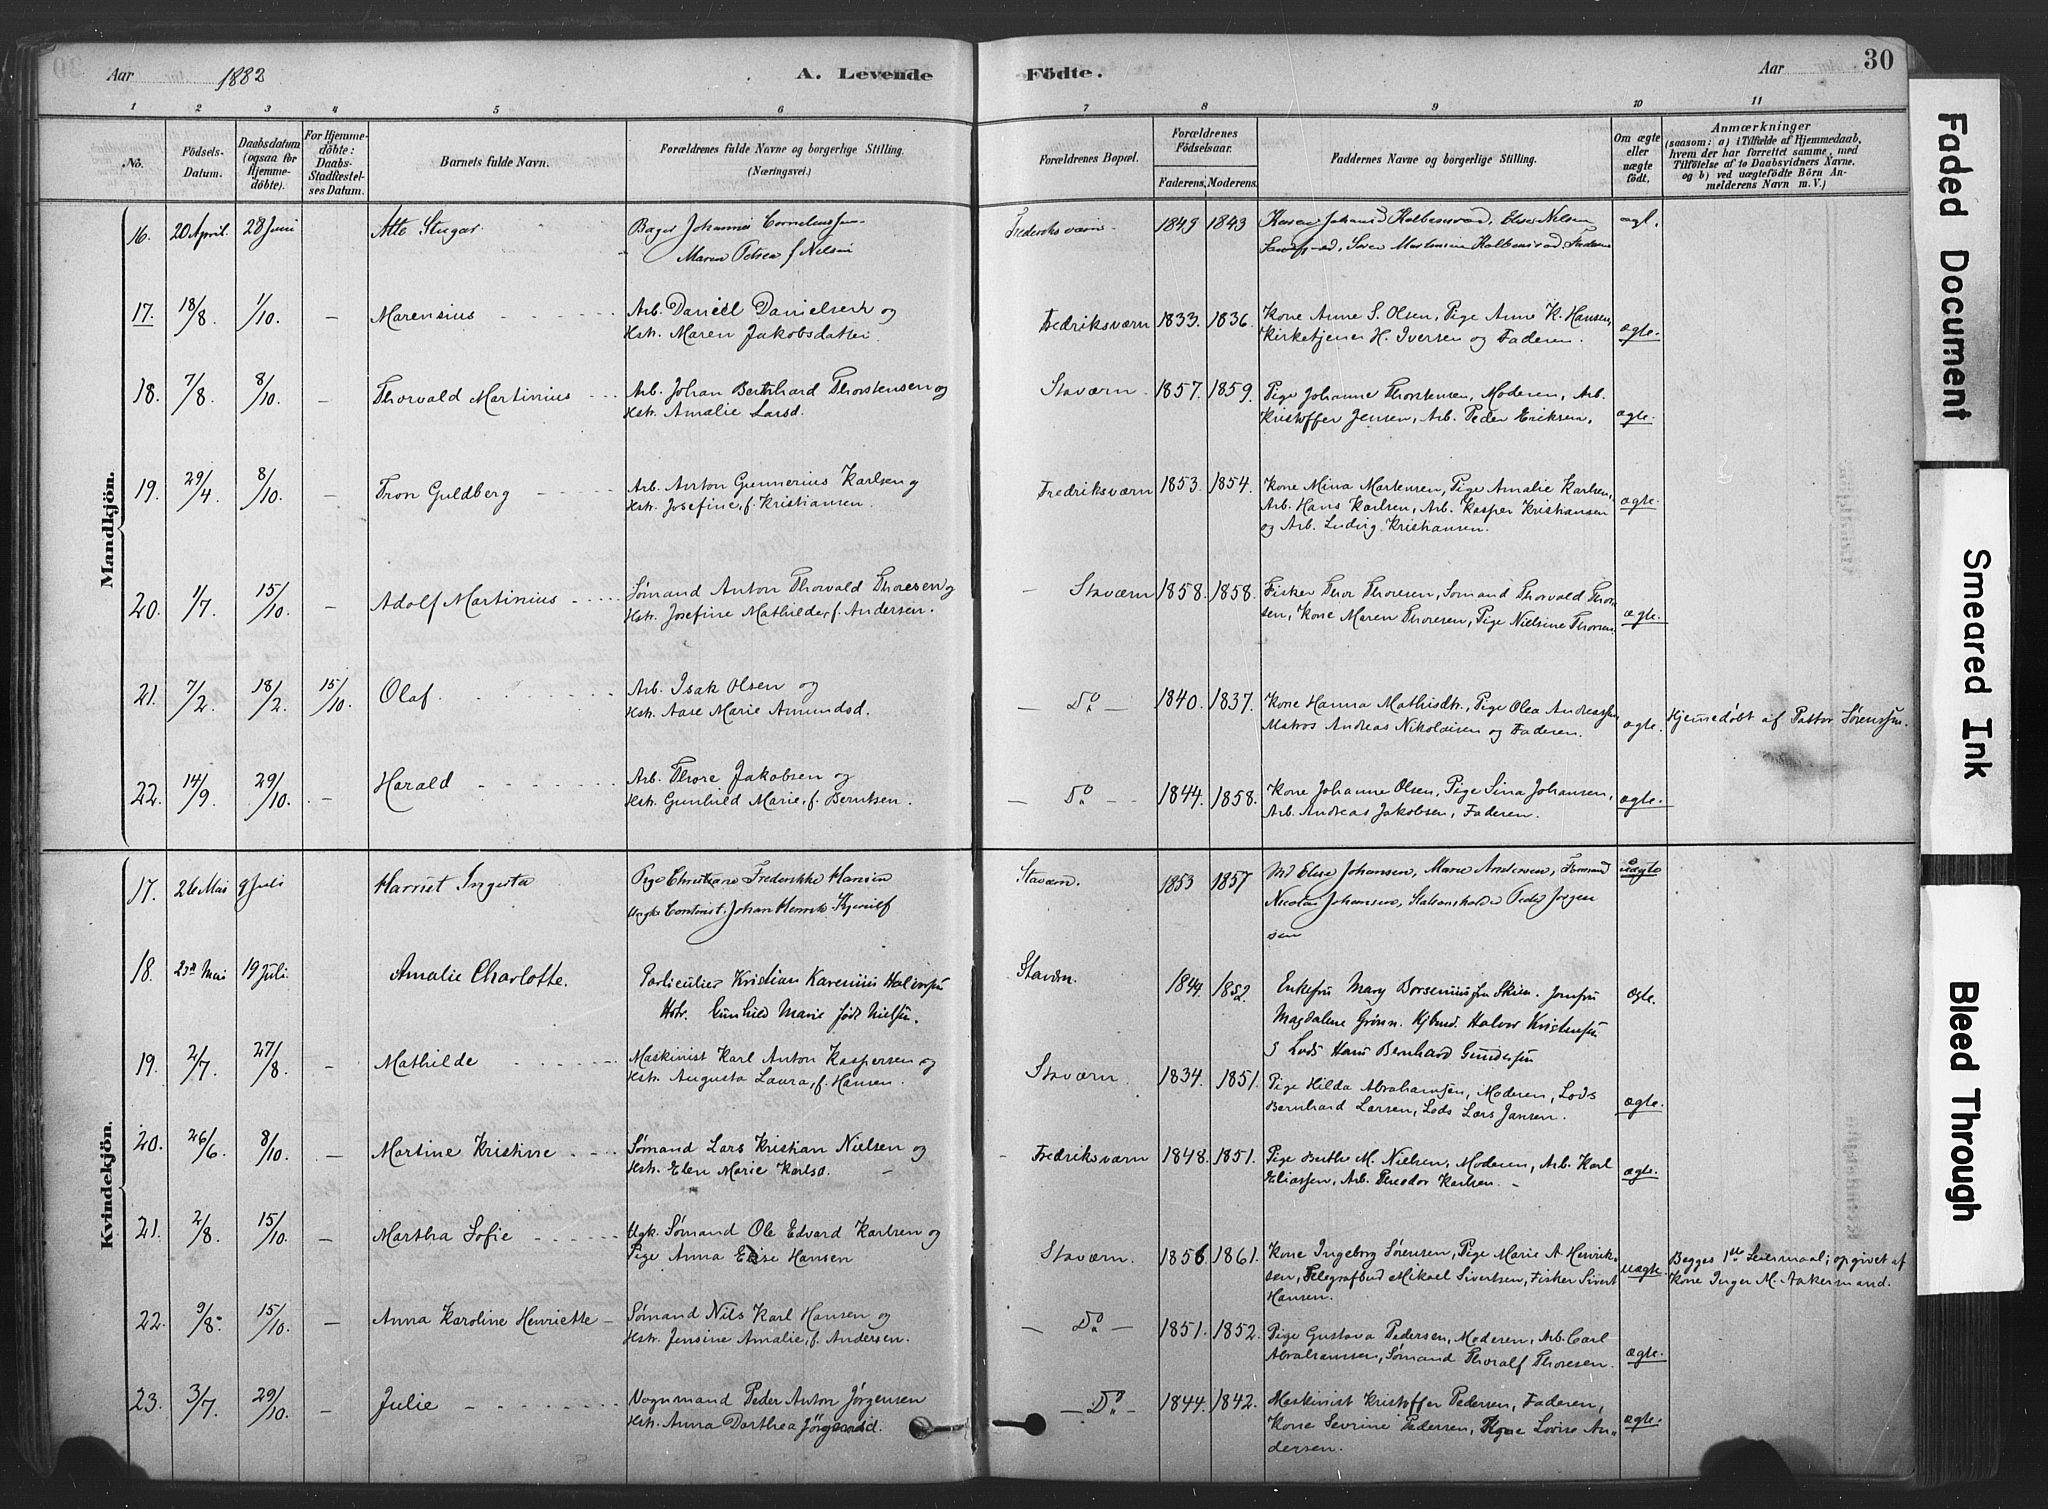 Aar 1882
A. Levende
Födte.
Aar
30
1 2 3 4 5 6 7 8 9 10 11
No.
Födsels-Datum.
Daabsdatum (ogsaa for Hjemmedöbte).
For Hjemmedöbte: Daabs-Stadfæstelses Datum.
Barnets fulde Navn.
Forældrenes fulde Navne og borgerlige Stilling.
(Næringsvei.)
Forældrenes Bopæl.
Forældrenes Födselsaar.
Faderens, Moderens.
Faddernes Navne og borgerlige Stilling.
Om ægte eller uægte födt.
Anmærkninger
(saasom: a) i Tilfælde af Hjemmedaab,
hvem der har forrettet samme, med
Tilföielse af to Daabsvidners Navne,
og b) ved uægtefödte Börn Anmelderens Navn m. V.)
Mandkjön.
16. 20 April. 28 Juni Bager Johannes Corneliussen
Maren Petrea f Nilsen
Frederiksværn 1849 1843
17. 18/8 1/10. – Marensius
Arb. Daniel Danielsen og
Hstr. Maren Jakobsdatter.
Fredriksværn 1833. 1836. Kone Anne S. Olsen, Pige Anne K. Hansen,
Kirketjener H. Iversen og Faderen. ægte.
18. 7/8 8/10. – Thorvald Martinius
Arb. Johan Bernhard Thorstensen og
Hstr. Amalie Larsd.
Staværn 1857. 1859. Pige Johanne Thorstensen, Moderen, Arb.
Kristoffer Jensen, Arb. Peder Eriksen, ægte.
19. 29/4 8/10. – Tron Guldberg
Arb. Anton Gunnerius Karlsen og
Hstr. Josefine, f. Kristiansen.
Fredriksværn 1853. 1854. Kone Mina Martensen, Pige Amalie Karlsen,
Arb. Hans Karlsen, Arb. Kasper Kristiansen
og Arb. Ludvig Kristiansen. ægte.
20. 1/7. 15/10. – Adolf Martinius
Sømand Anton Thorvald Thoresen og
Hstr. Josefine Mathilde, f. Andersen.
– Staværn 1858. 1858. Fisker Thor Thoresen, Sømand Thorvald Thore-
sen, Kone Maren Thoresen, Pige Nielsine Thoresen ægte.
21. 7/2. 18/2. 15/10. Olaf.
Arb. Isak Olsen og
Hstr. Aase Marie Amundsd.
– Do – 1840. 1837. Kone Hanna Mathisdtr., Pige Olea Andreassen
Matros Andreas Nikolaisen og Faderen. ægte. Hjemmedøbt af Pastor Sørenssen.
22. 14/9. 29/10. – Harald
Arb. Thore Jakobsen og
Hstr. Gunhild Marie, f. Berntsen.
– Do – 1844. 1858. Kone Johanne Olsen, Pige Sina Johansen,
Arb. Andreas Jakobsen, Faderen. ægte.
Kvindekjön.
17. 26 Mai 9 Juli Harriet Ingerta
Pige Christiane Frederikke Hansen
Johan Henrik
Staværn. 1853 1857 Elise Johansen, Marie Andersen,
Nicolai Johansen, Peder Jørgen
sen uægte
18. Mai 19 Juli Amalie Charlotte.
Particulier Kristian Karenius
Hstr. Gunhild Marie født Nielsen.
Staværn. 1849 1852. Enkefru Mary Skien. Jomfru
Magdalene Grønn. Halvor Kristensen
Lods Hans Bernhard Gundersen ægte.
19. 2/7. 27/8. – Mathilde
Maskinist Karl Anton Kaspersen og
Hstr. Augusta Laura, f. Hansen.
Staværn. 1834. 1851. Pige Hilda Abrahamsen, Moderen, Lods
Bernhard Larsen, Lods Lars Jansen. ægte.
20. 26/6. 8/10. – Martine Kristine
Sømand Lars Kristian Nielsen og
Hstr. Elen Marie Karlsd.
Fredriksværn 1848. 1851. Pige Berthe M. Nielsen, Moderen, Arb. Karl
Eliassen, Arb. Theodor Karlsen. ægte.
21. 2/8. 15/10. – Martha Sofie
Ugk. Sømand Ole Edvard Karlsen og
Pige Anna Elise Hansen
Staværn. 1856 1861. Kone Ingeborg Sørensen, Pige Marie A Henrik-
sen, Telegrafbud Mikael Sivertsen, Fisker Sivert
Hansen. uægte. Begges 1ste Leiermaal; opgivet af
Kone Inger M. Aakermand.
22. 9/8. 15/10. – Anna Karoline Henriette
Sømand Nils Karl Hansen og
Hstr. Jensine Amalie, f. Andersen.
– Do – 1851. 1852. Pige Gustava Pedersen, Moderen, Arb. Carl
Abrahamsen, Sømand Thoralf Thoresen. ægte.
23. 3/7. 29/10. – Julie
Vognmand Peder Anton Jørgensen
Hstr. Anna Dorthea
– Do – 1844. 1842. Maskinist Kristoffer Pedersen, Faderen,
Kone Sevrine Pedersen, Lovise An-
dersen. ægte.
Faded Document
Smeared Ink
Bleed Through